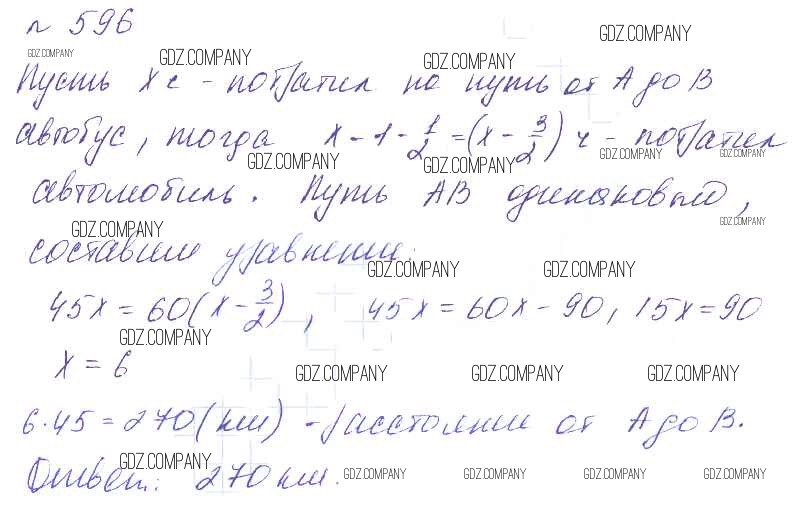 № 596
GDZ.COMPANY GDZ.COMPANY GDZ.COMPANY GDZ.COMPANY
Пусть x ч - потратил на путь от A до B
автобус, тогда x - 1 - 1/2 = (x - 3/2) ч - потратил
GDZ.COMPANY GDZ.COMPANY GDZ.COMPANY GDZ.COMPANY
автомобиль. Путь AB одинаковый,
GDZ.COMPANY GDZ.COMPANY
составим уравнение:
GDZ.COMPANY GDZ.COMPANY
45x = 60(x - 3/2), 45x = 60x - 90, 15x = 90
GDZ.COMPANY
x = 6
GDZ.COMPANY GDZ.COMPANY GDZ.COMPANY
6·45 = 270 (км) - расстояние от A до B.
GDZ.COMPANY
Ответ: 270 км.
GDZ.COMPANY GDZ.COMPANY GDZ.COMPANY GDZ.COMPANY